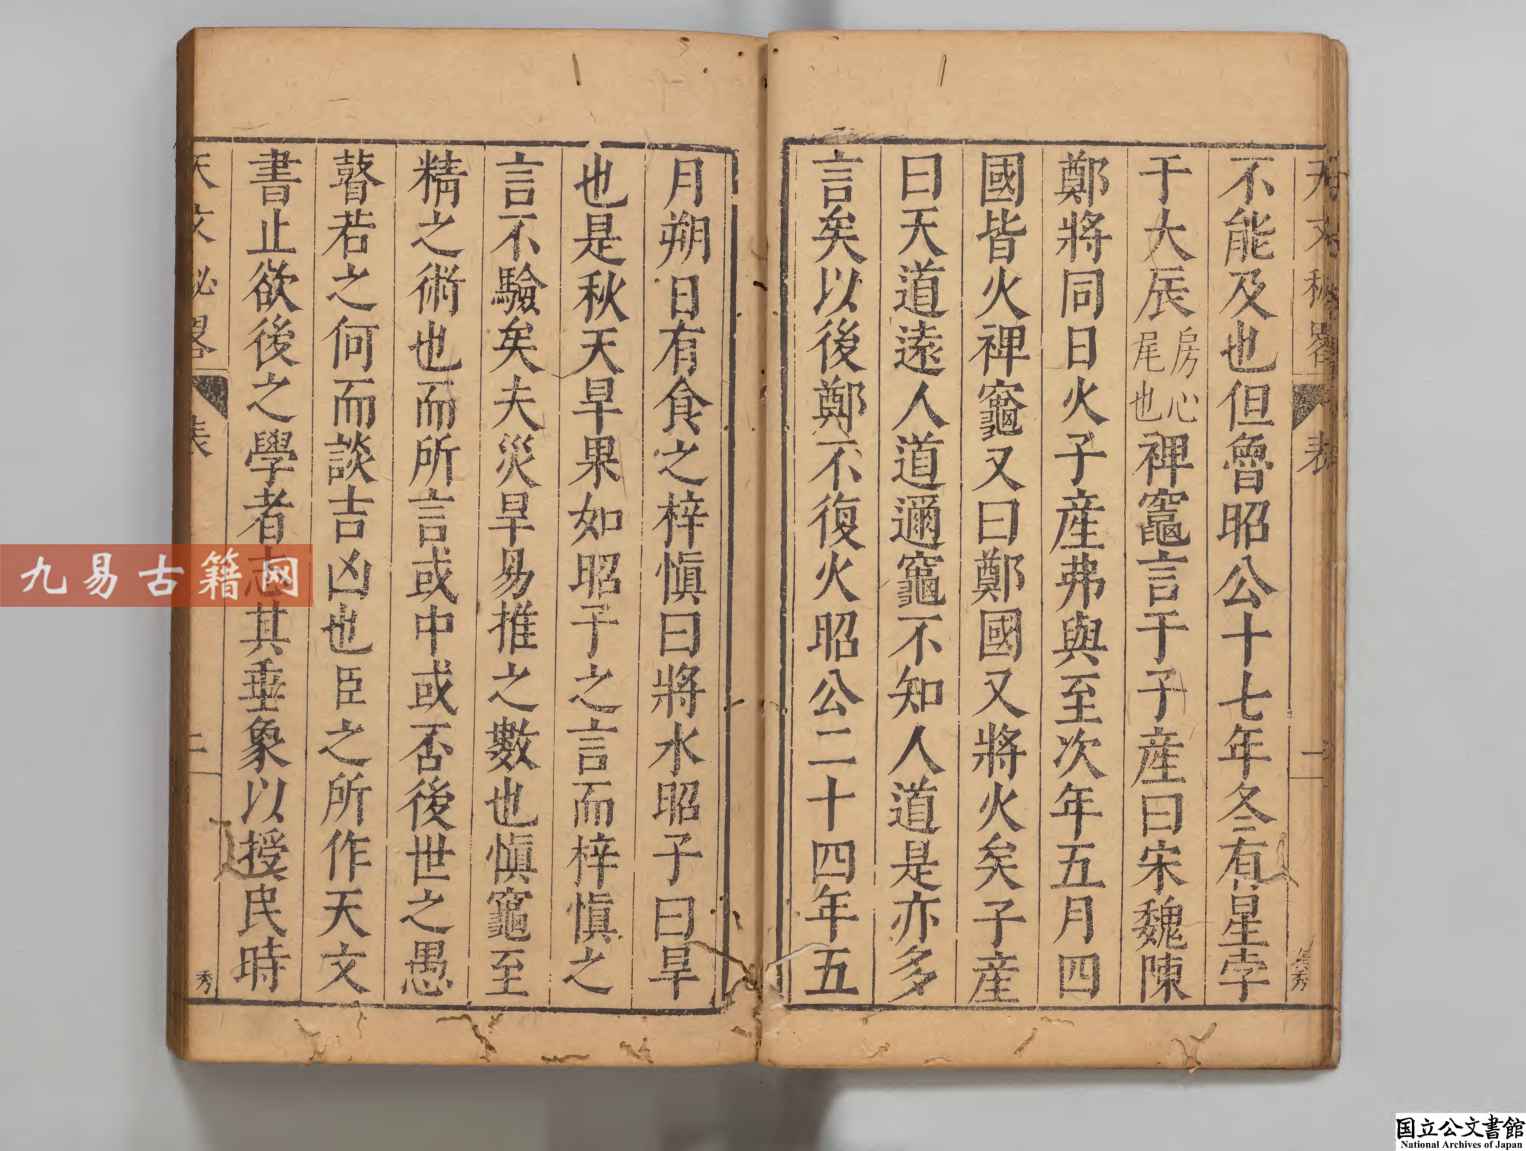 不能及也但魯昭公十七年冬有星孛
于大辰房心尾也裨竈言于子產曰宋魏陳
鄭將同日火子產弗與至次年五月四
國皆火裨竈又曰鄭國又將火矣子產
曰天道遠人道邇竈不知人道是亦多
言矣以後鄭不復火昭公二十四年五
月朔日有食之梓慎曰將水昭子曰旱
也是秋天旱果如昭子之言而梓慎之
言不驗矣夫災旱易推之數也慎竈至
精之術也而所言或中或否後世之愚
瞽若之何而談吉凶也臣之所作天文
書止欲後之學者志其垂象以授民時
天文秘畧
表
二
秀
九易古籍网
国立公文書館
National Archives of Japan